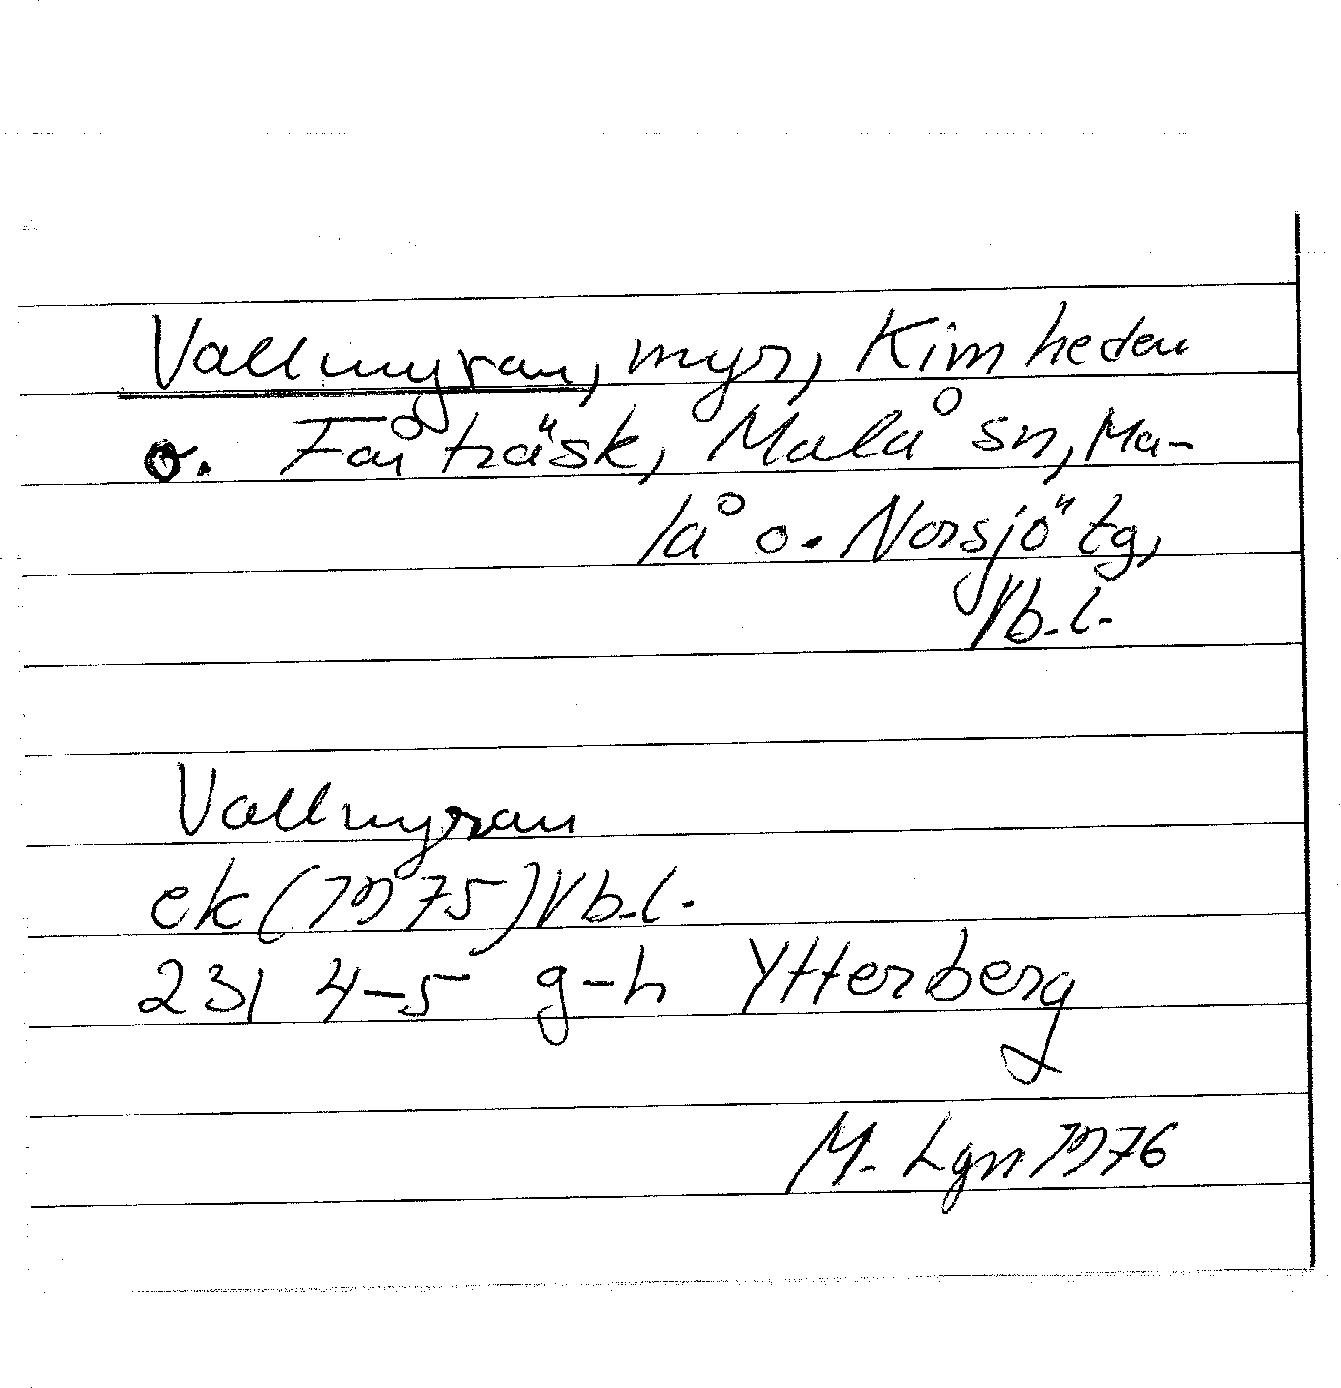 Vallmyran, myr, Kimheden
o. Fårträsk, Malå sn, Ma-
lå o. Norsjö tg,
Vb.l.
Vallmyran
ek (1975) Vb.l.
231 4-5 g-h Ytterberg
M. Lgn 1976